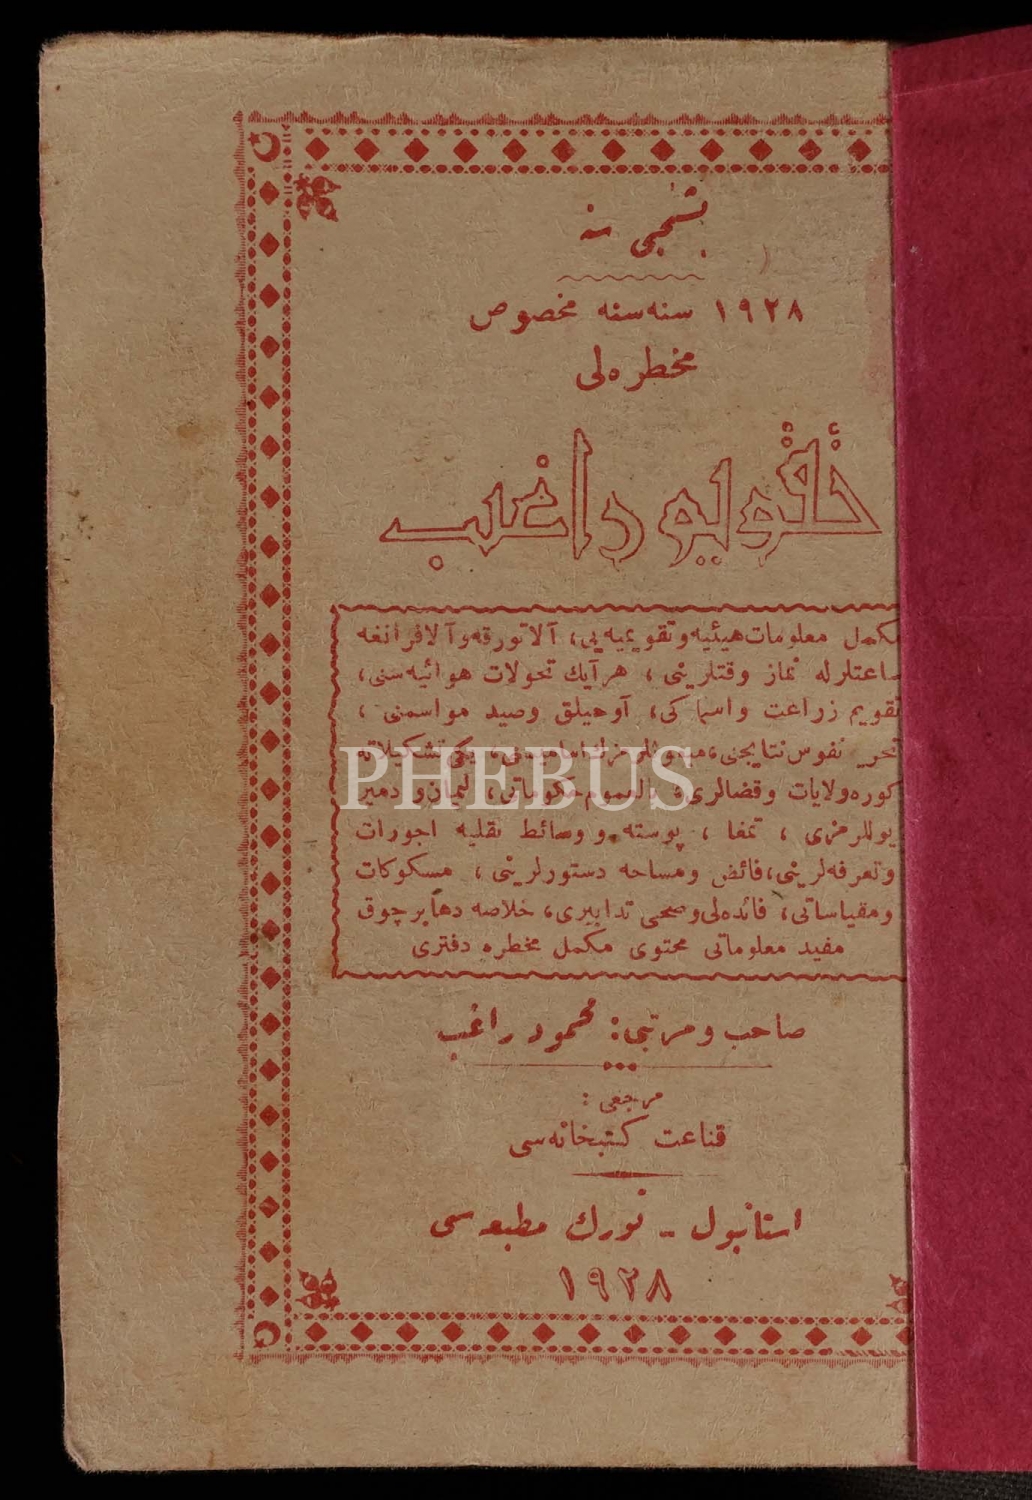 بشنجی سنه
١٩٢٨ سنه سنه مخصوص
مخطره لی
تقویم راغب
مكمل معلومات هیئیه و تقویمیه یی، آلاتورقه و آلافرانغه
ساعتلرله نماز وقتلرینی، هر آیك تحولات هوائیه سنی،
تقویم زراعت و اسماكی، آوجیلق وصید مواسمنی،
نفوس نتایجنی،
PHEBUS
كوره ولایات و قضالری، بالعموم لیمان و دمیر
یوللرمزی، تمغا، پوسته و وسائط نقلیه اجورات
و تعرفه لرینی، فائض و مساحه دستورلرینی، مسكوكات
و مقیاساتی، فائده لی و صحی تدابیری، خلاصه دها بر چوق
مفید معلوماتی محتوی مكمل مخطره دفتری
صاحب و مرتبی: محمود راغب
مرجعی:
قناعت كتبخانه سی
استانبول - تورك مطبعه سی
١٩٢٨